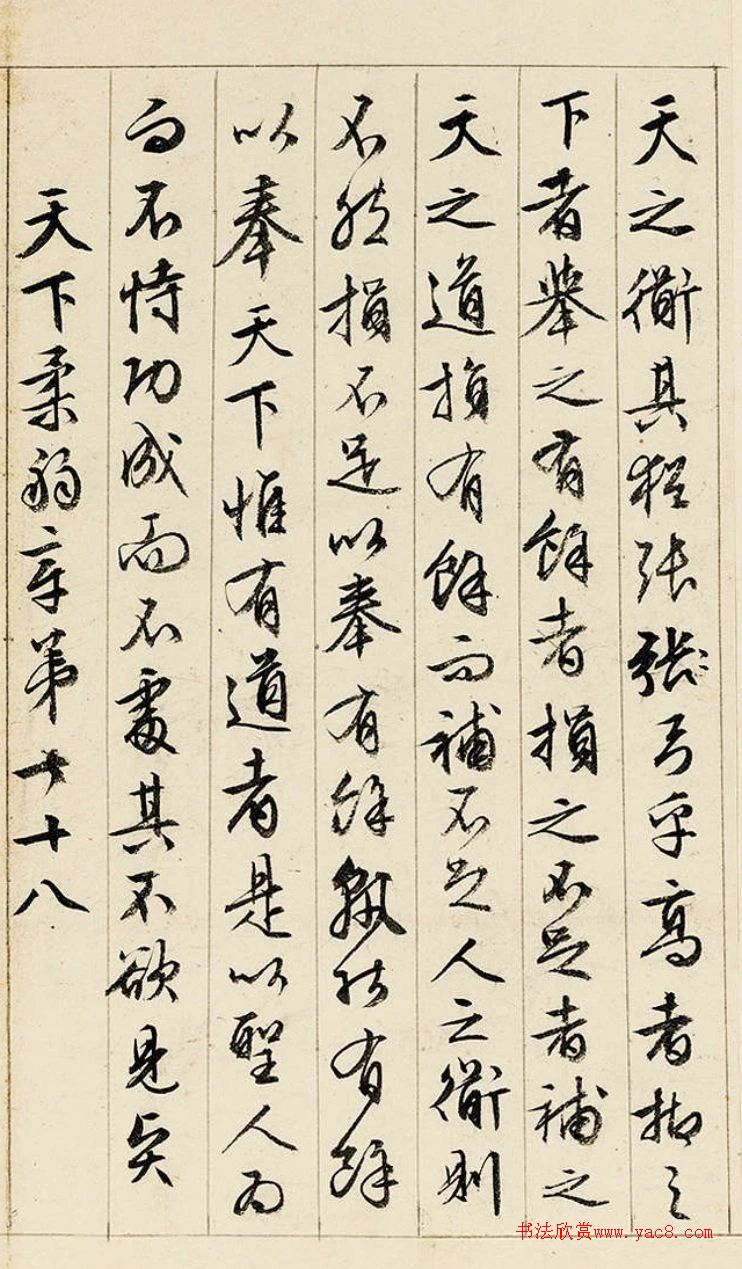 天之衜其猶張張弓乎高者抑之
下者舉之有餘者損之不足者補之
天之道損有餘而補不足人之衜則
不然損不足以奉有餘孰能有餘
以奉天下惟有道者是以聖人為
而不恃功成而不處其不欲見賢
天下柔弱章第七十八
书法欣赏www.yac8.com